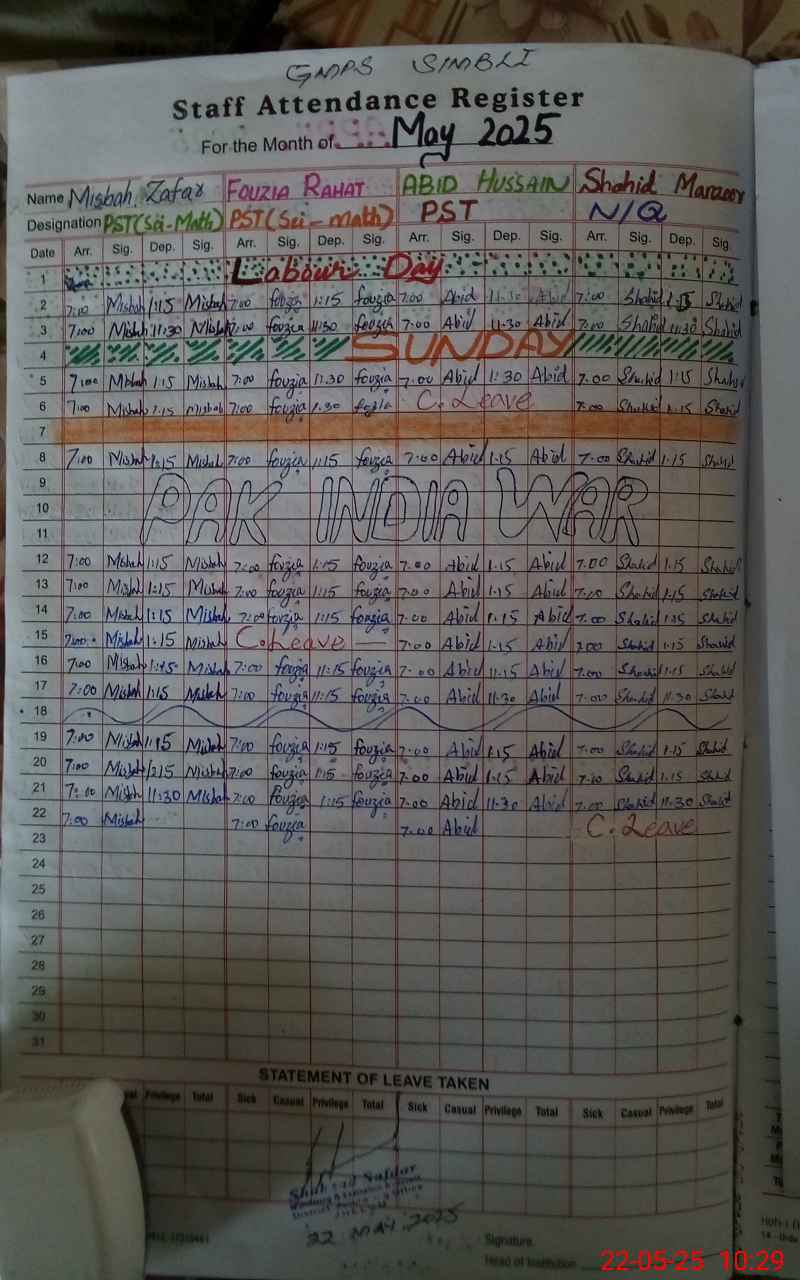 GMPS SIMBLI
Staff Attendance Register
For the Month of May 2025
Name Misbah Zafar FOUZIA RAHAT ABID HUSSAIN Shahid Manzoor
Designation PST(Sci-Math) PST(Sci-Math) PST N/Q
Date Arr. Sig. Dep. Sig. Arr. Sig. Dep. Sig. Arr. Sig. Dep. Sig. Arr. Sig. Dep. Sig.
1 Labour Day
2 7:00 Misbah 1:15 Misbah 7:00 fouzia 1:15 fouzia 7:00 Abid 11:30 Abid 7:00 Shahid 1:15 Shahid
3 7:00 Misbah 11:30 Misbah 7:00 fouzia 11:30 fouzia 7:00 Abid 11-30 Abid 7:00 Shahid 11:30 Shahid
4 SUNDAY
5 7:00 Misbah 1:15 Misbah 7:00 fouzia 11:30 fouzia 7:00 Abid 1:30 Abid 7:00 Shahid 1:15 Shahid
6 7:00 Misbah 1:15 Misbah 7:00 fouzia 1:30 fozia C. Leave 7:00 Shahid 1:15 Shahid
7
8 7:00 Misbah 1:15 Misbah 7:00 fouzia 1:15 fouzia 7:00 Abid 1:15 Abid 7:00 Shahid 1:15 Shahid
9
10 PAK INDIA WAR
11
12 7:00 Misbah 1:15 Misbah 7:00 fouzia 1:15 fouzia 7:00 Abid 1:15 Abid 7:00 Shahid 1:15 Shahid
13 7:00 Misbah 1:15 Misbah 7:00 fouzia 1:15 fouzia 7:00 Abid 1:15 Abid 7:00 Shahid 1:15 Shahid
14 7:00 Misbah 1:15 Misbah 7:00 fouzia 1:15 fouzia 7:00 Abid 1:15 Abid 7:00 Shahid 1:15 Shahid
15 7:00 Misbah 1:15 Misbah C. Leave — 7:00 Abid 1:15 Abid 7:00 Shahid 1:15 Shahid
16 7:00 Misbah 1:15 Misbah 7:00 fouzia 11:15 fouzia 7:00 Abid 11:15 Abid 7:00 Shahid 1:15 Shahid
17 7:00 Misbah 1:15 Misbah 7:00 fouzia 11:15 fouzia 7:00 Abid 11:30 Abid 7:00 Shahid 11:30 Shahid
18
19 7:00 Misbah 1:15 Misbah 7:00 fouzia 1:15 fouzia 7:00 Abid 1:15 Abid 7:00 Shahid 1:15 Shahid
20 7:00 Misbah 1:15 Misbah 7:00 fouzia 1:15 fouzia 7:00 Abid 1:15 Abid 7:00 Shahid 1:15 Shahid
21 7:00 Misbah 11:30 Misbah 7:00 fouzia 1:15 fouzia 7:00 Abid 11:30 Abid 7:00 Shahid 11:30 Shahid
22 7:00 Misbah 7:00 fouzia 7:00 Abid C. Leave
23
24
25
26
27
28
29
30
31
STATEMENT OF LEAVE TAKEN
Privilege Total Sick Casual Privilege Total Sick Casual Privilege Total Sick Casual Privilege Total
22 MAY 2025
Signature
Head of Institution
22-05-25 10:29